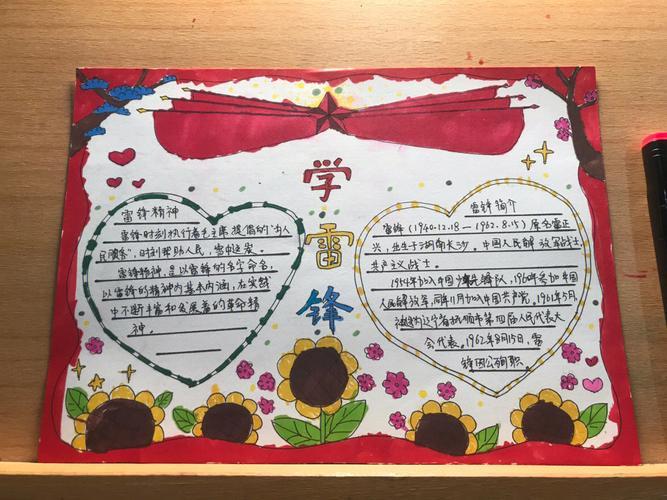 学
雷
锋
雷锋精神
雷锋时刻执行着毛主席提倡的“为人
民服务”，时刻帮助人民，雪中送炭。
雷锋精神，是以雷锋的名字命名，
以雷锋的精神为基本内涵，在实践
中不断丰富和发展着的革命精
神。
雷锋简介
雷锋（1940.12.18—1962.8.15）原名雷正
兴，出生于湖南长沙。中国人民解放军战士，
共产主义战士。
1954年加入中国少先队，1960年参加中国
人民解放军，同年11月加入中国共产党，1961年5月，
被选为辽宁省抚顺市第四届人民代表大
会代表。1962年8月15日，雷
锋因公殉职。